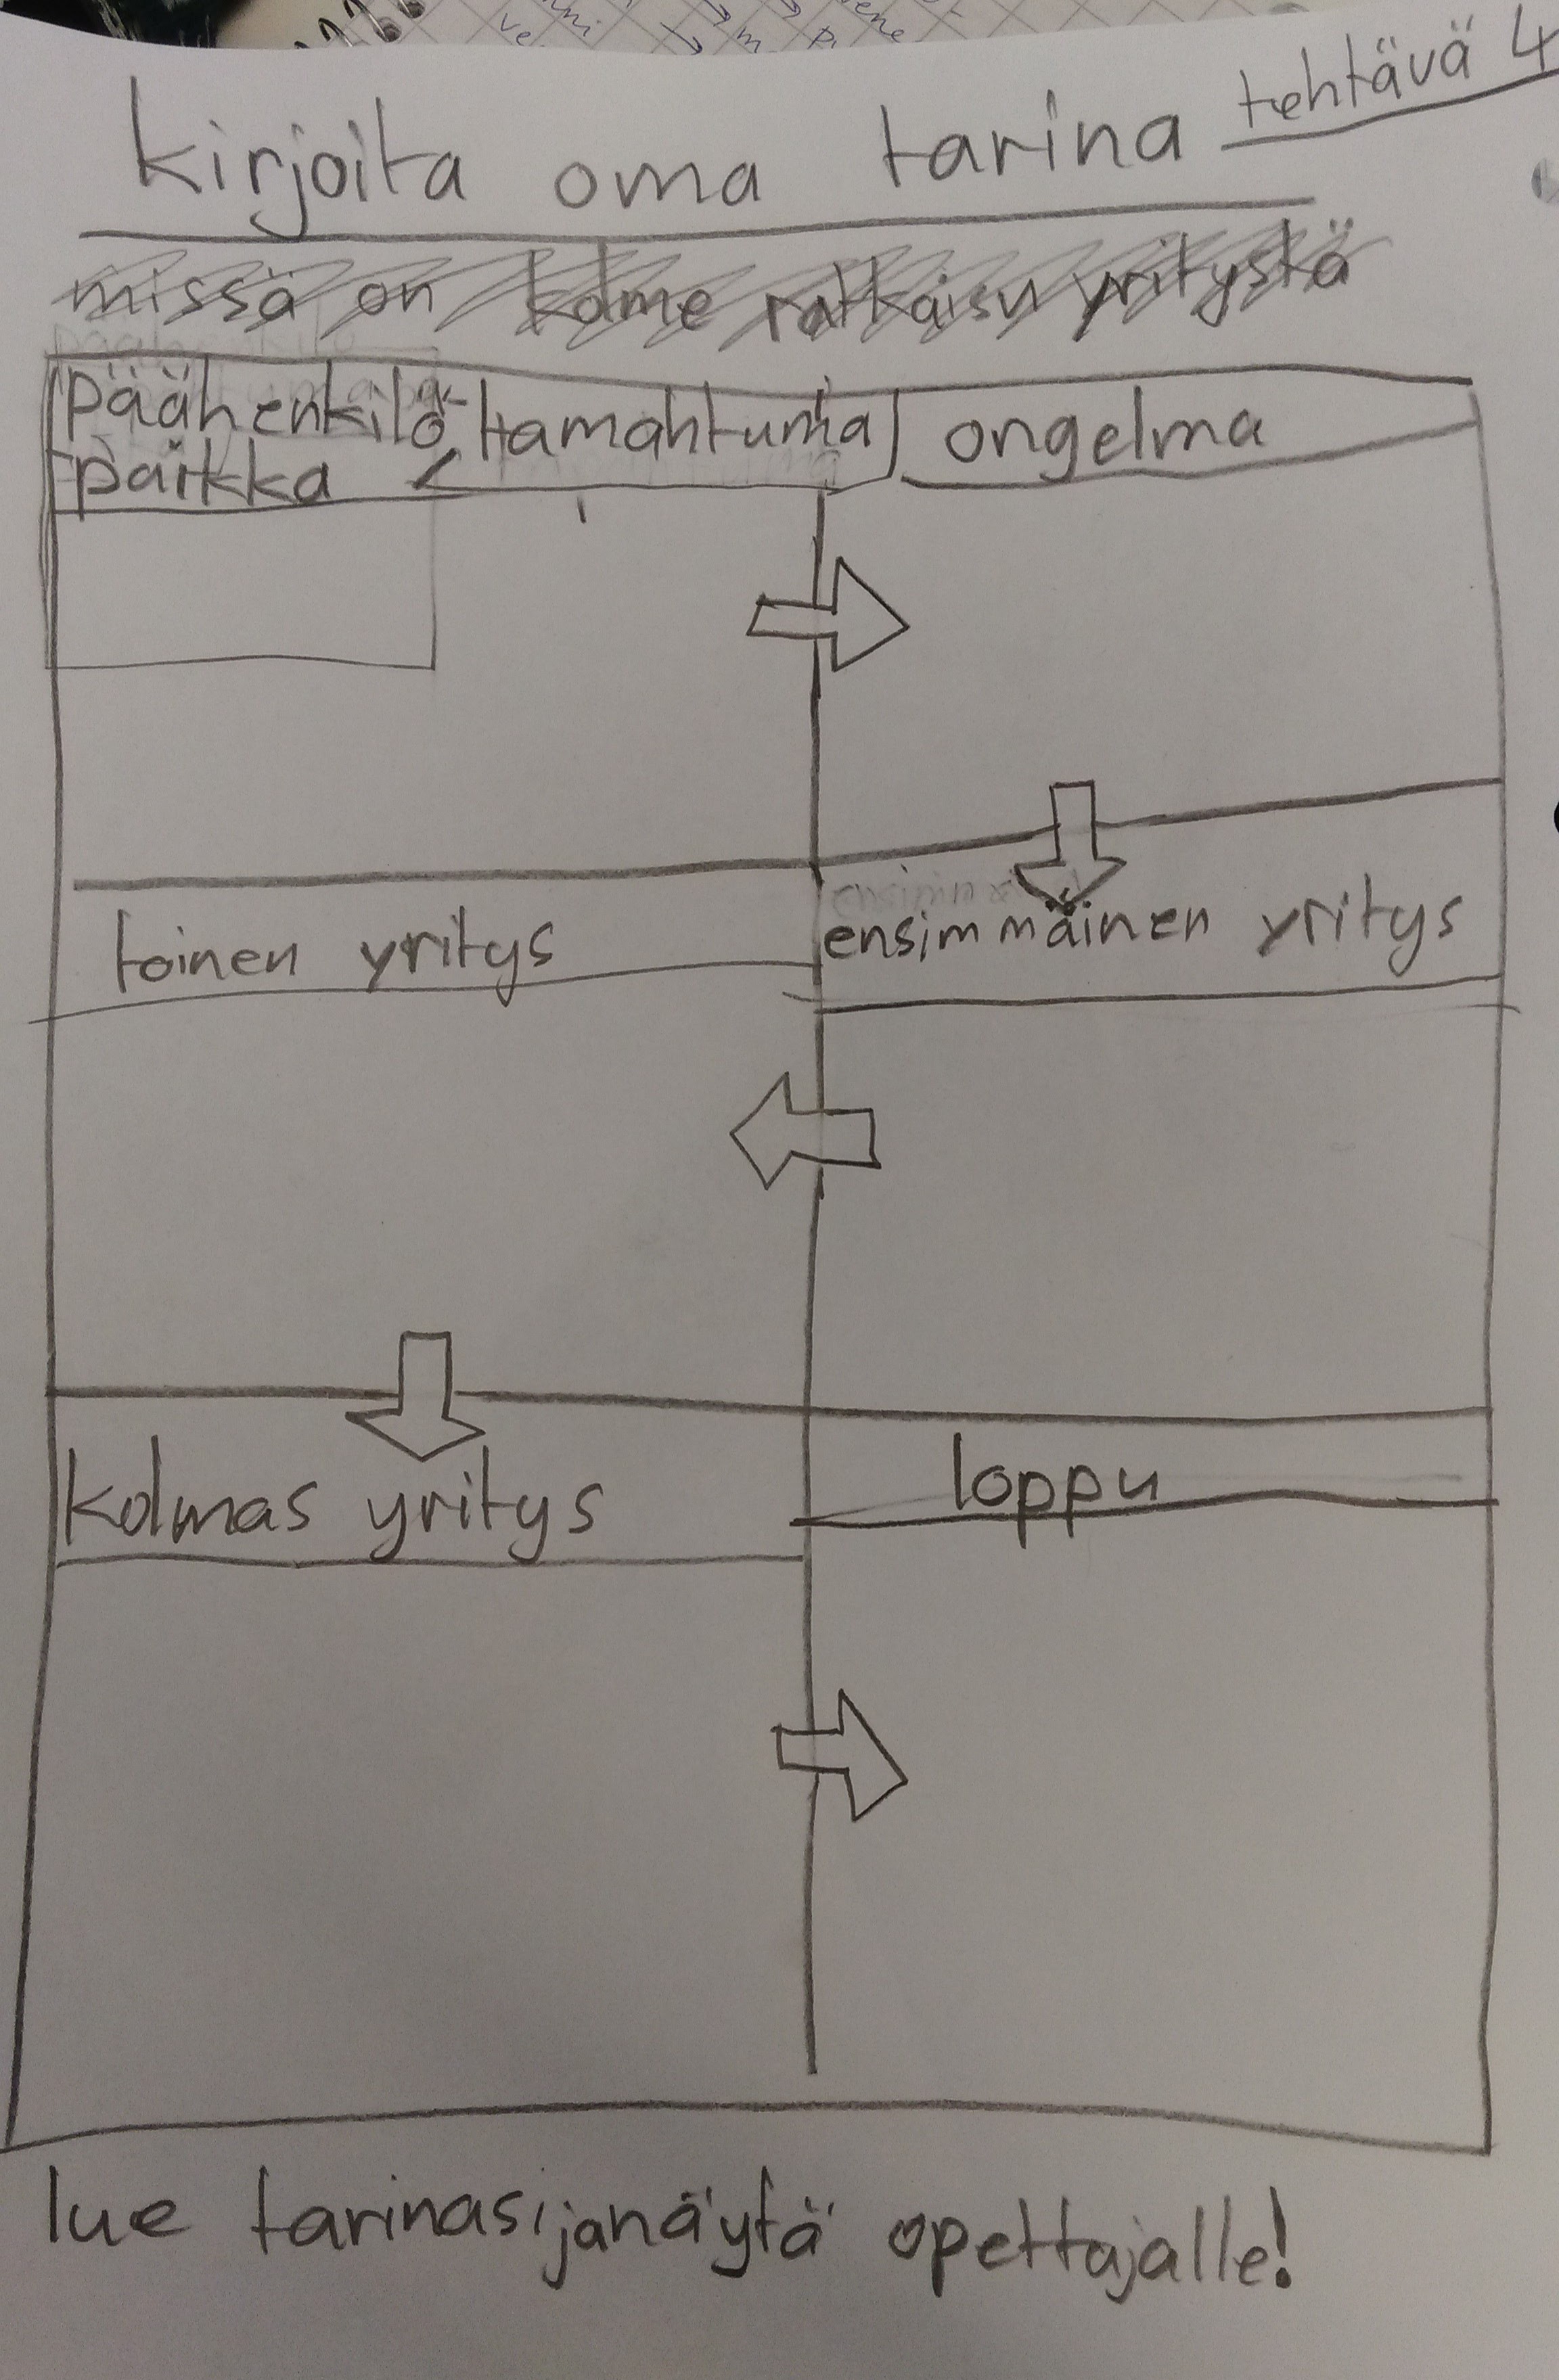 tehtävä 4
kirjoita oma tarina
missä on kolme ratkaisu yritystä
päähenkilö tamahtuma ongelma
paikka
toinen yritys ensimmäinen yritys
kolmas yritys loppu
lue tarinasi janäytä opettajalle!